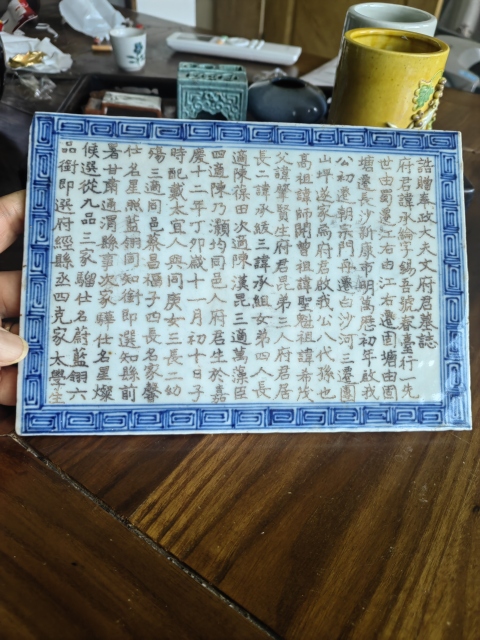 誥贈奉政大夫文府君墓誌
府君諱承綸字錫吾號春臺行一先
世由蜀遷江右由江右遷固塘由固
塘遷長沙新康市明萬應初年啟我
公初遷朝宗門再遷白沙河三遷團
山坪遂家焉府君啟我公八代孫也
高祖諱師閑曾祖諱聖魁祖諱希茂
父諱肇賢生府君昆弟三人府君居
長二諱承紱三諱承組女弟四人長
適陳葆田次適陳漢昆三適萬藻臣
四適陳乃瀕均同邑人府君生於嘉
慶十二年丁卯歲十一月初十日子
時配戴太宜人與同庚女三長二幼
殤三適同邑蔡昌福子四長名家馨
仕名星照藍翎同知銜即選知縣前
署甘肅通渭縣事次家驊仕名星燦
候選從九品三家騮仕名蔚藍翎六
品銜即選府經縣丞四克家太學生